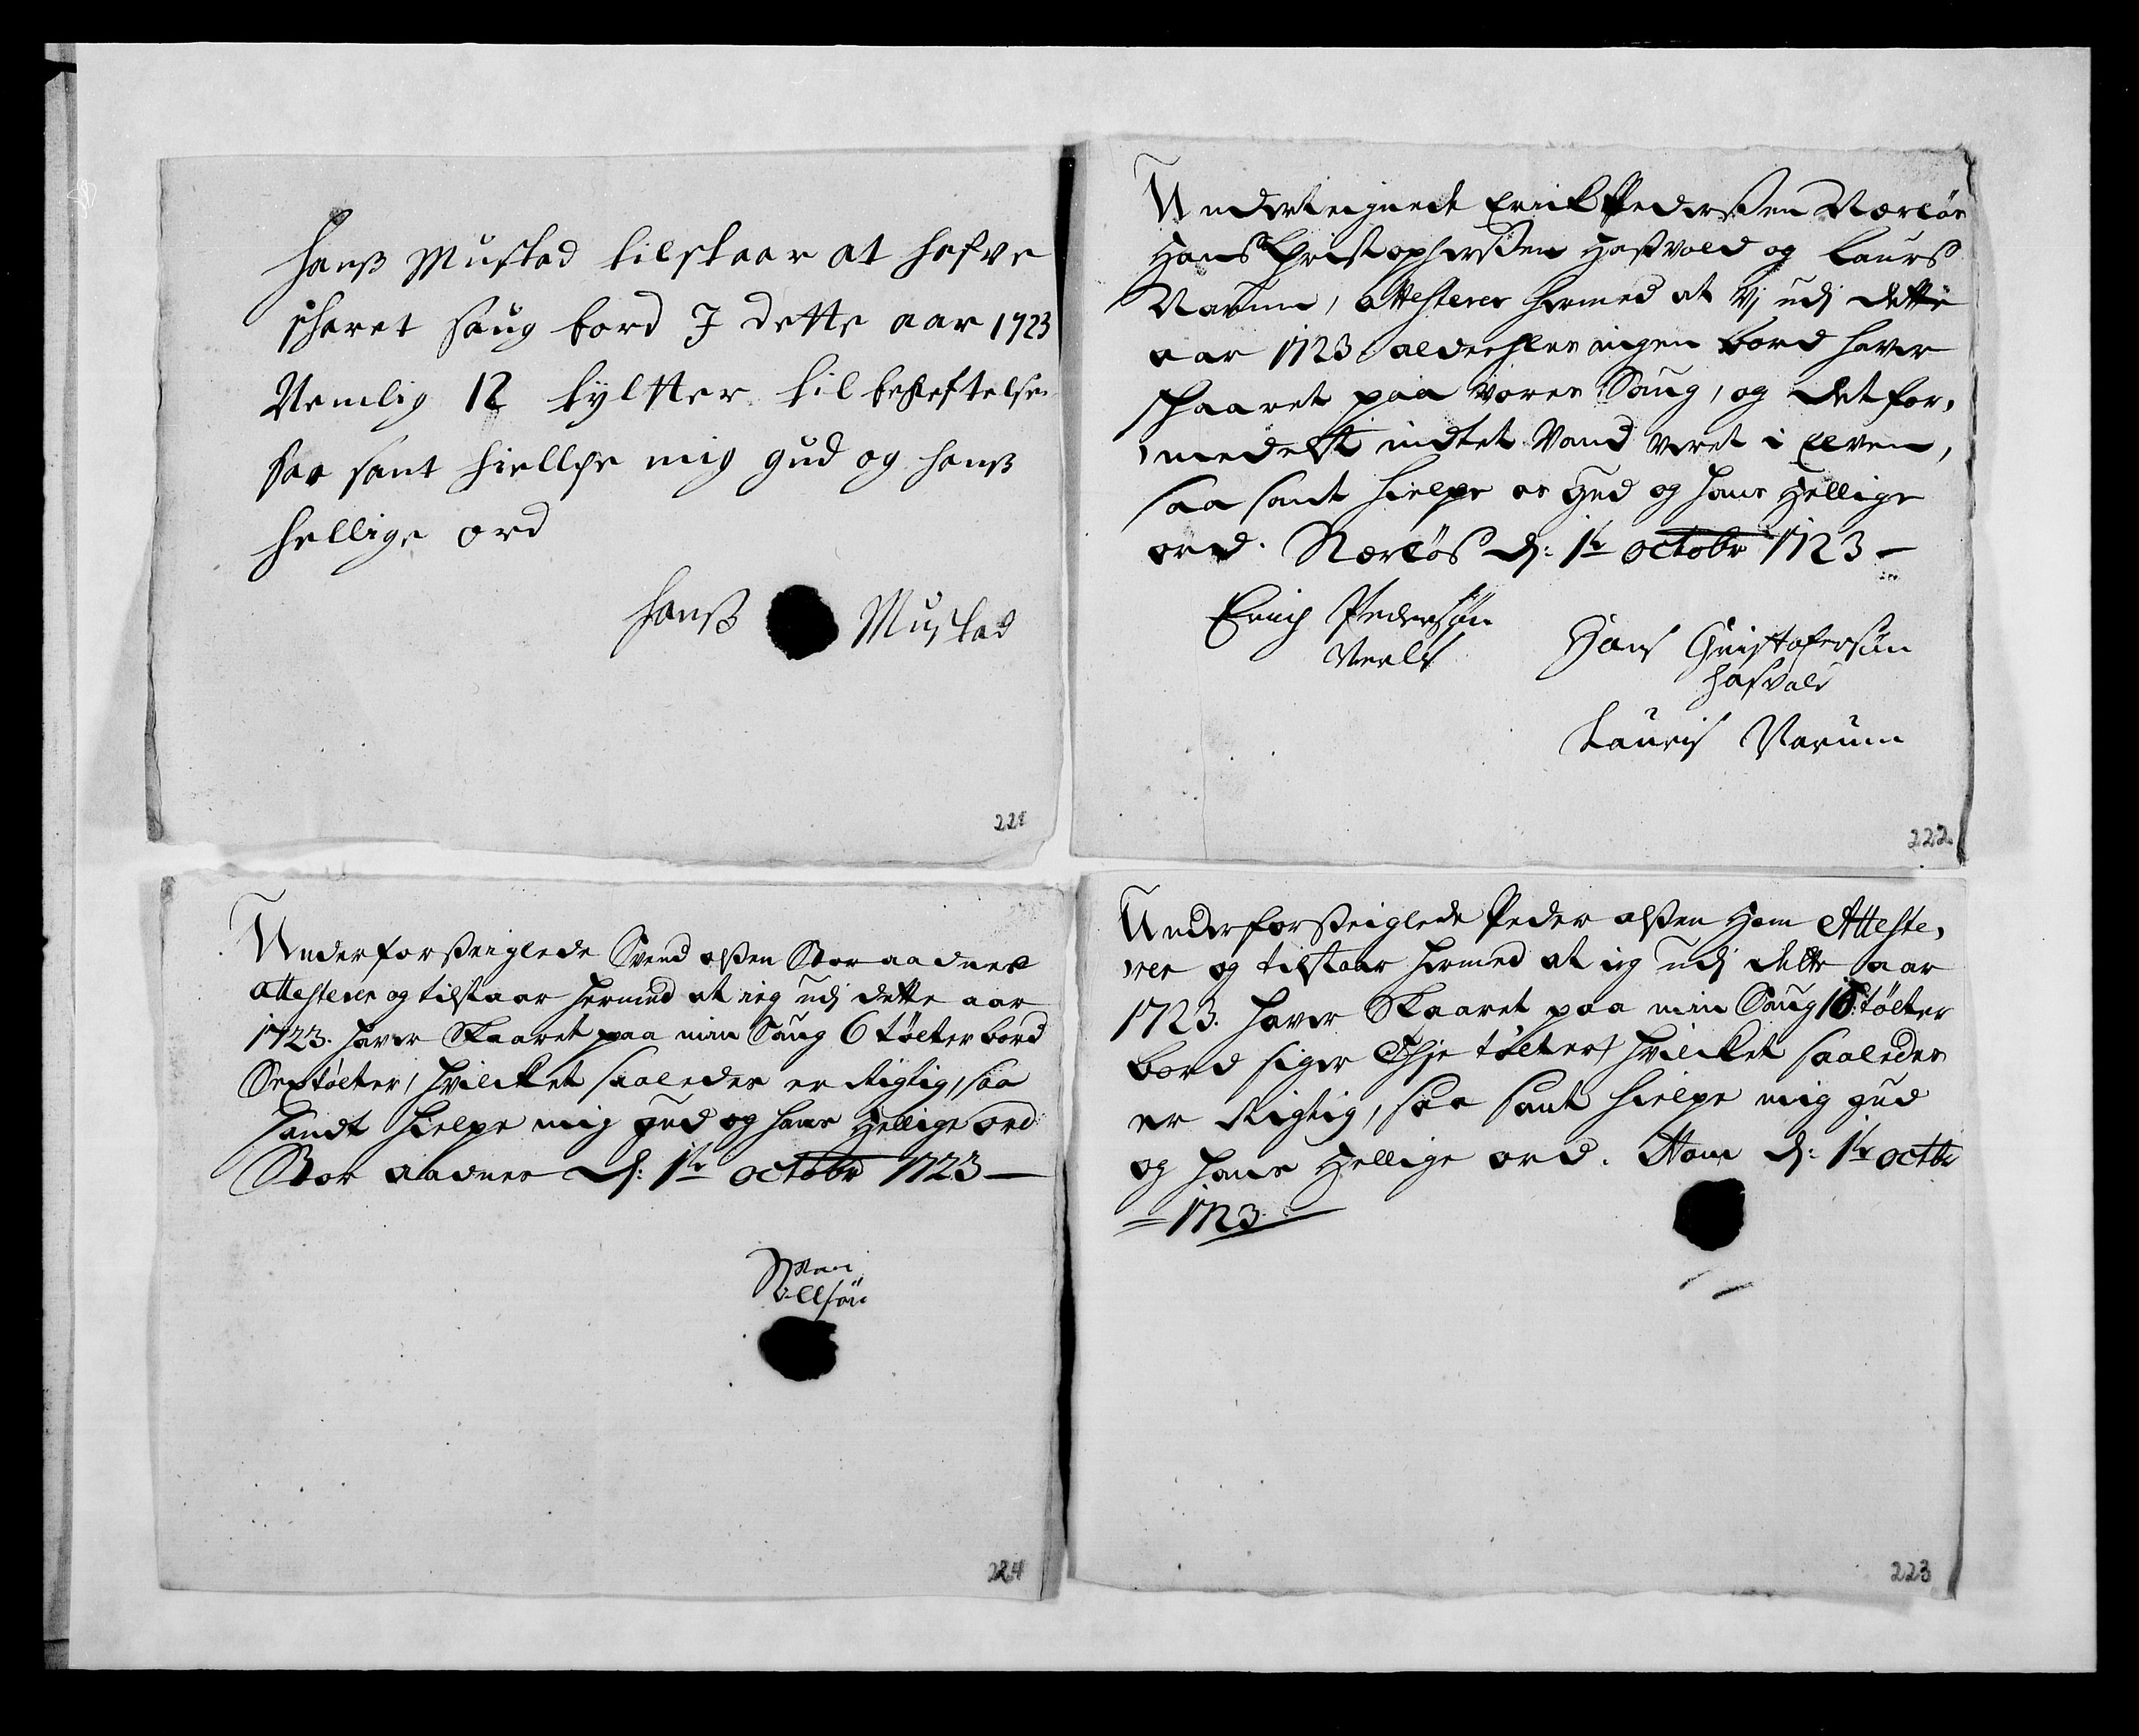 Hanß Mustad tilstaar at hafve
skaret saug bord I dette aar 1723
Nemlig 12 tyltter til bekreftelse
saa sant hiellpe mig gud og hanß
hellige ord
Hanß Mustad
221
Underteignede Erick Pederßen
Hans Christopherßen Haßvold og Laurs
Narum, attesterer hermed at Vj udj dette
aar 1723 aldeehles ingen bord haver
skaaret paa vores Saug, og det for,
medelst indtet Vand veret i Elven,
saa sant hielpe os Gud og hans Hellige
ord. d: 1te octobr 1723
Erich Pedersøn
Hans Christofersøn
Hasvald
Lauris Narum
222
Underforßeiglede Svend olßen Stor aadnes
attesterer og tilstaar hermed at ieg udj dette aar
1723. haver Skaaret paa min Saug 6 tølter bord
Sex tølter, hvilcket saaledes er Rigtig, saa
sandt hielpe mig Gud og hans Hellige ord
Stor aadnes d: 1te octobr 1723
Ollsøn
224
Underforßeiglede Peder olßen Hom Atteste,
rer og tilstaar hermed at ieg udj dette aar
1723. haver Skaaret paa min Saug tølter
bord siger tølter hvilcket saaledes
er Rigtig, saa sant hielpe mig gud
og hans Hellige ord. Hom d: 1te octbr
1723
223